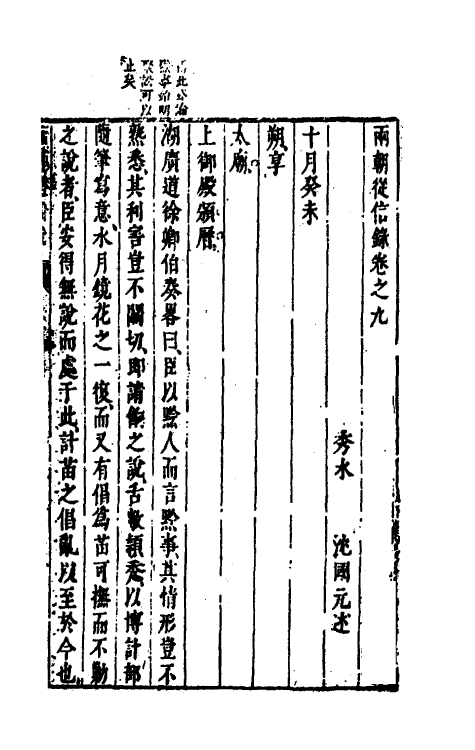 兩朝從信錄卷之九
秀水 沈國元述
十月癸未
朔享
太廟
上御殿頒曆
湖廣道徐卿伯奏畧曰臣以黔人而言黔事其情形豈不
熟悉其利害豈不關切即請餉之說舌敝潁禿以博計部
隨筆寫意水月鏡花之一復而又有倡為苗可撫而不勦
之說者臣安得無說而處于此計苗之倡亂以至於今也
止矣